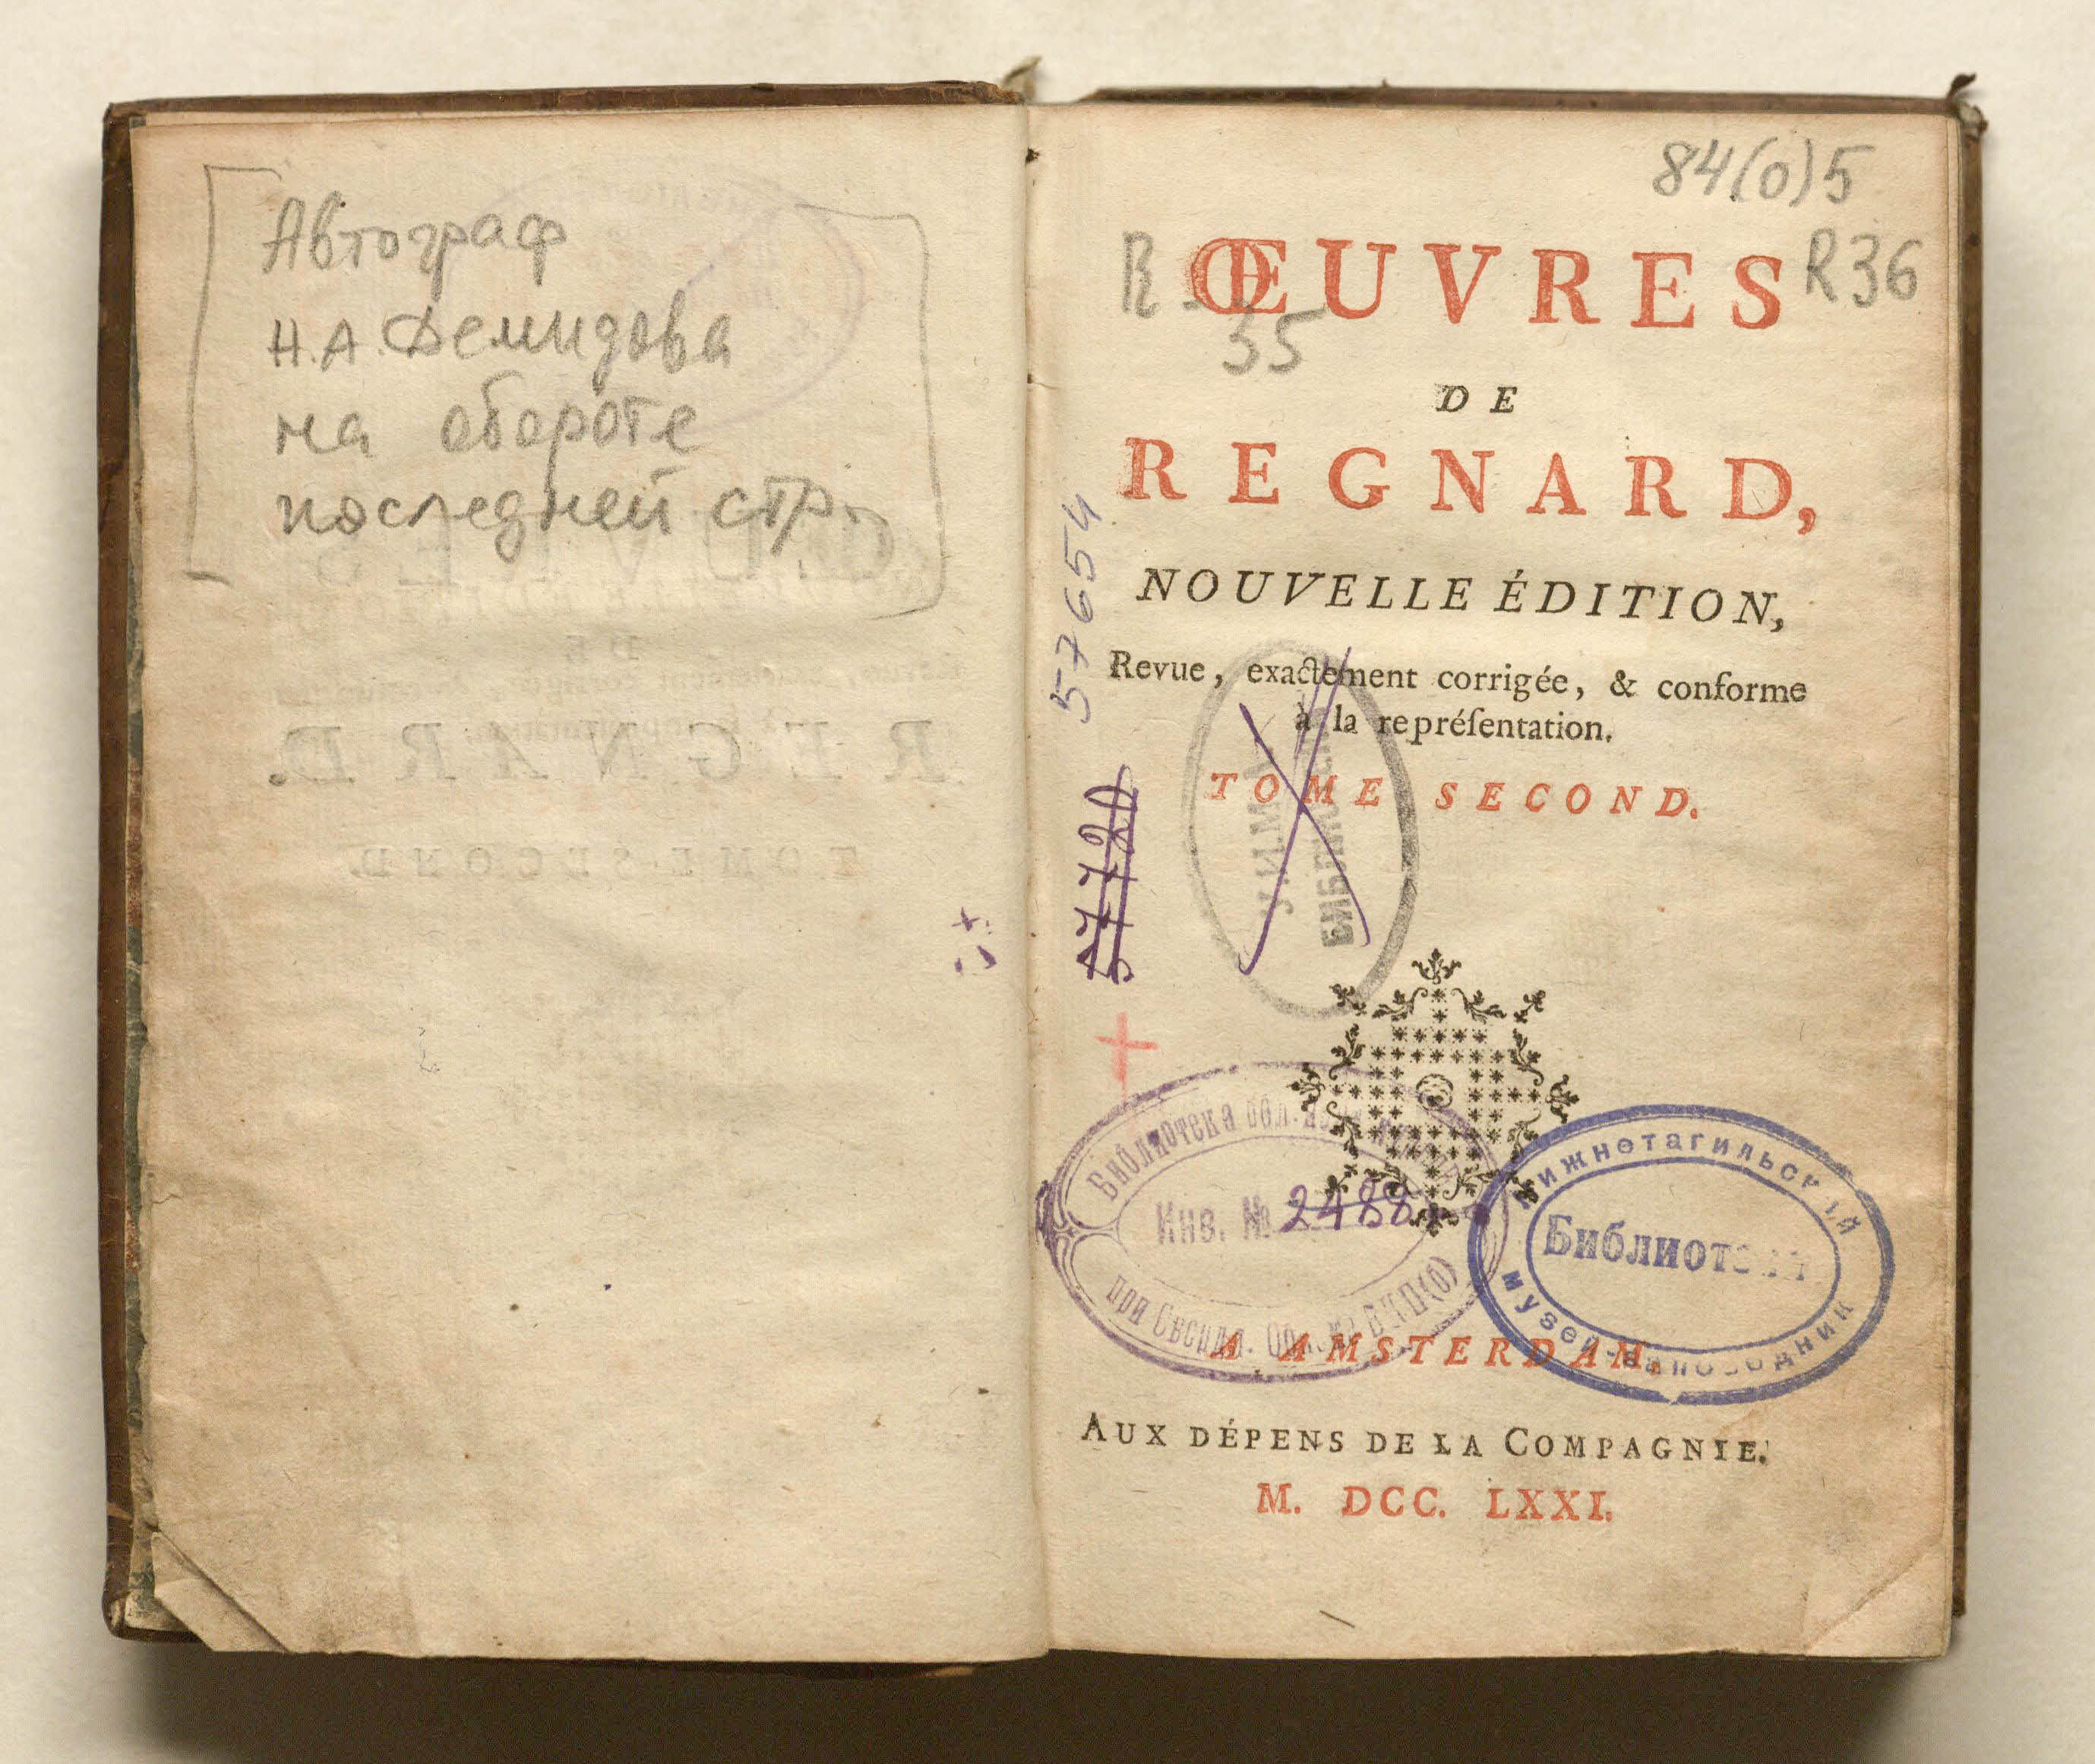 Автограф
Н.А. Демидова
на обороте
последней стр.
84(0)5
R36
R-
35
ŒUVRES
DE
REGNARD,
NOUVELLE ÉDITION,
Revue, exactement corrigée, & conforme
à la repréſentation.
TOME SECOND.
57654
57720
БИБЛИОТЕКА
Библиотека
Инв. № 2488
при Свердл. ВКП(б)
Нижнетагильский
Библиотека
музей-заповедник
A AMSTERDAM,
AUX DÉPENS DE LA COMPAGNIE.
M. DCC. LXXI.
REGNARD.
TOME SECOND.